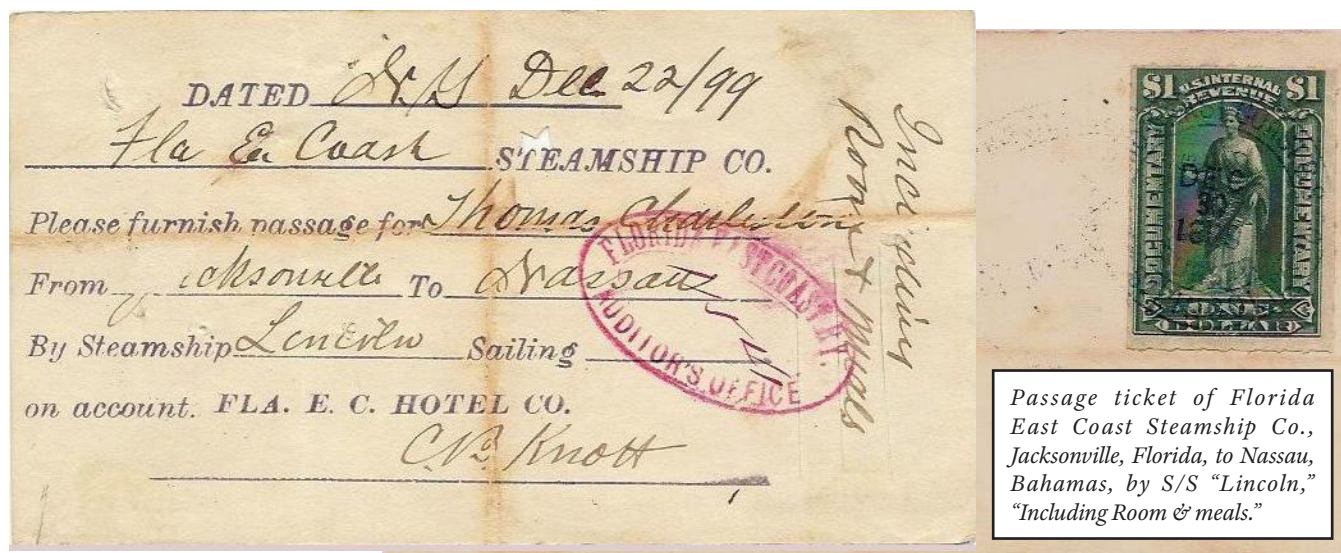 DATED N.Y Dec 22/99
Fla Ea Coast STEAMSHIP CO.
Please furnish passage for Thomas
From Jacksonville To Nassau
By Steamship Lincoln Sailing
on account. FLA. E. C. HOTEL CO.
C.B. Knott
Including
Room & Meals
FLORIDA EAST COAST RY.
AUDITOR'S OFFICE
$1 U.S. INTERNAL REVENUE $1
DOCUMENTARY
DOCUMENTARY
DEC
30
ONE
DOLLAR
Passage ticket of Florida
East Coast Steamship Co.,
Jacksonville, Florida, to Nassau,
Bahamas, by S/S “Lincoln,”
“Including Room & meals.”